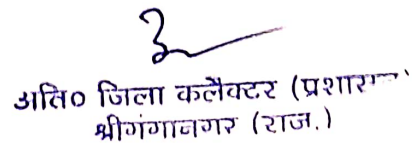 अति० जिला कलैक्टर
श्रीगंगानगर (राज.)